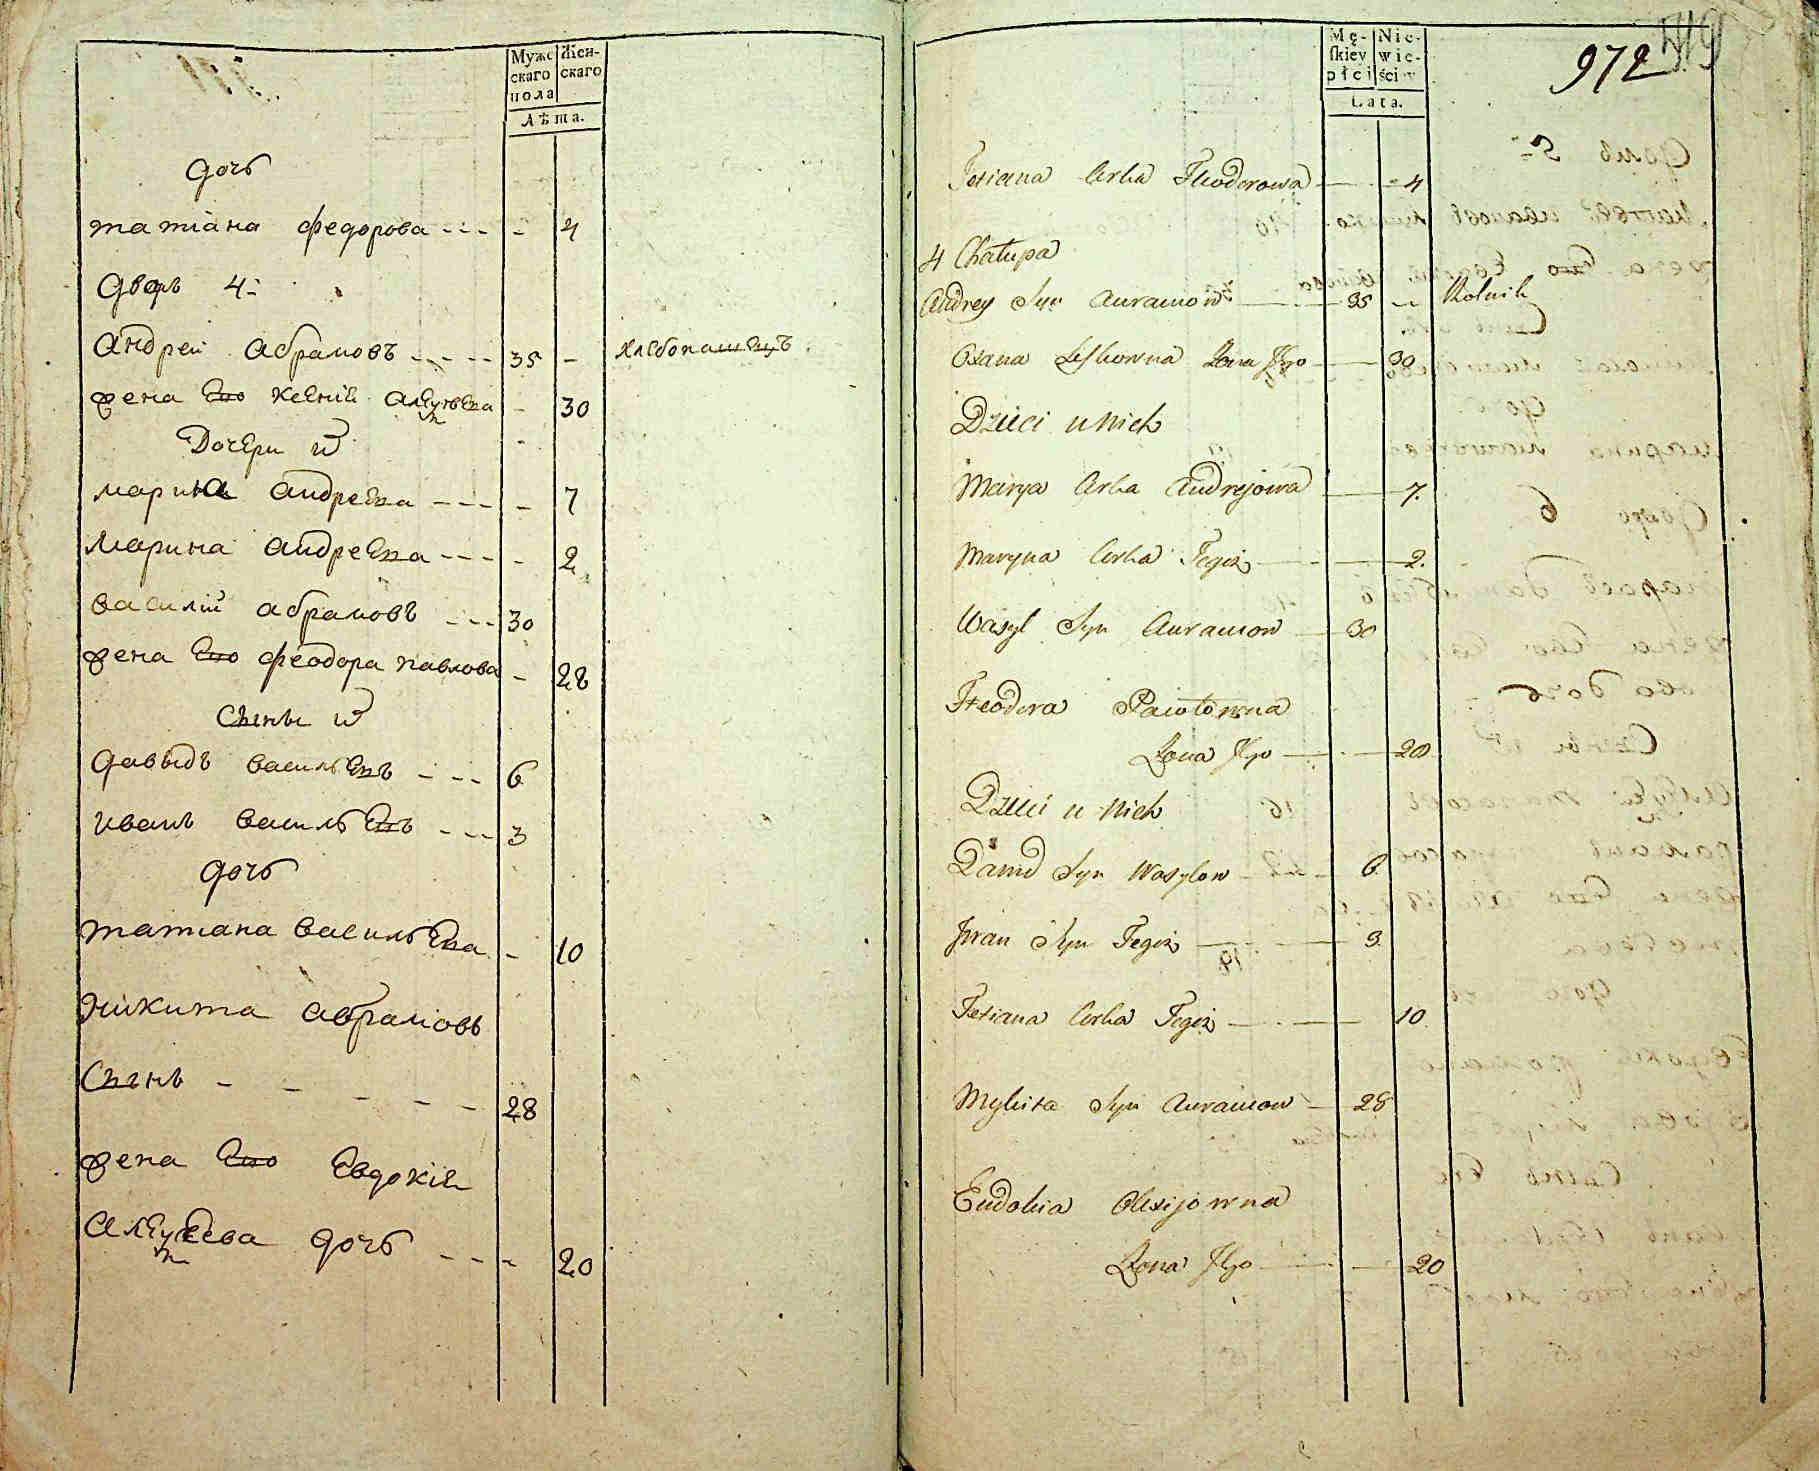 Муже
скаго
пола
Жен-
скаго
Лѣта.
дочь
татіана федорова - - - - 4
дворъ 4й
андреи абрамовъ - - - - 35 - хлебопашецъ
жена Ево ксеніи - 30
Дочери их
мариа андреева - - - - 7
марина андреева - - - - 2
василій абрамовъ - - - 30
жена Ево феодора павлова - 28
Сыны их
давыдъ васильевъ - - - 6
иванъ васильевъ - - - 3
дочь
татиана васильева - 10
никита абрамовъ
Сынъ - - - - - 28
жена Ево Евдокіи
дочь - - - 20
Mę-
skiey
płci
Nie-
wie-
ści
Lata.
972
Tetiana Corka Fheodorowa - - 4
4 Chałupa
Andrey Syn Auramow 35 - Rolnik
Oxana Zona Jego 30
Dzieci u Nich
Marya Corka Andrejowa 7.
Maryna Corka Tegoż 2.
Wasyl Syn Auramow 30
Fteodora Pawłowna
Zona Jego 28
Dzieci u Nich
Dawid Syn Wasylow 6
Jwan Syn Tegoż 3
Tetiana Corka Tegoż 10
Mykita Syn Auramow 28
Eudokia Olexijowna
Zona Jego 20